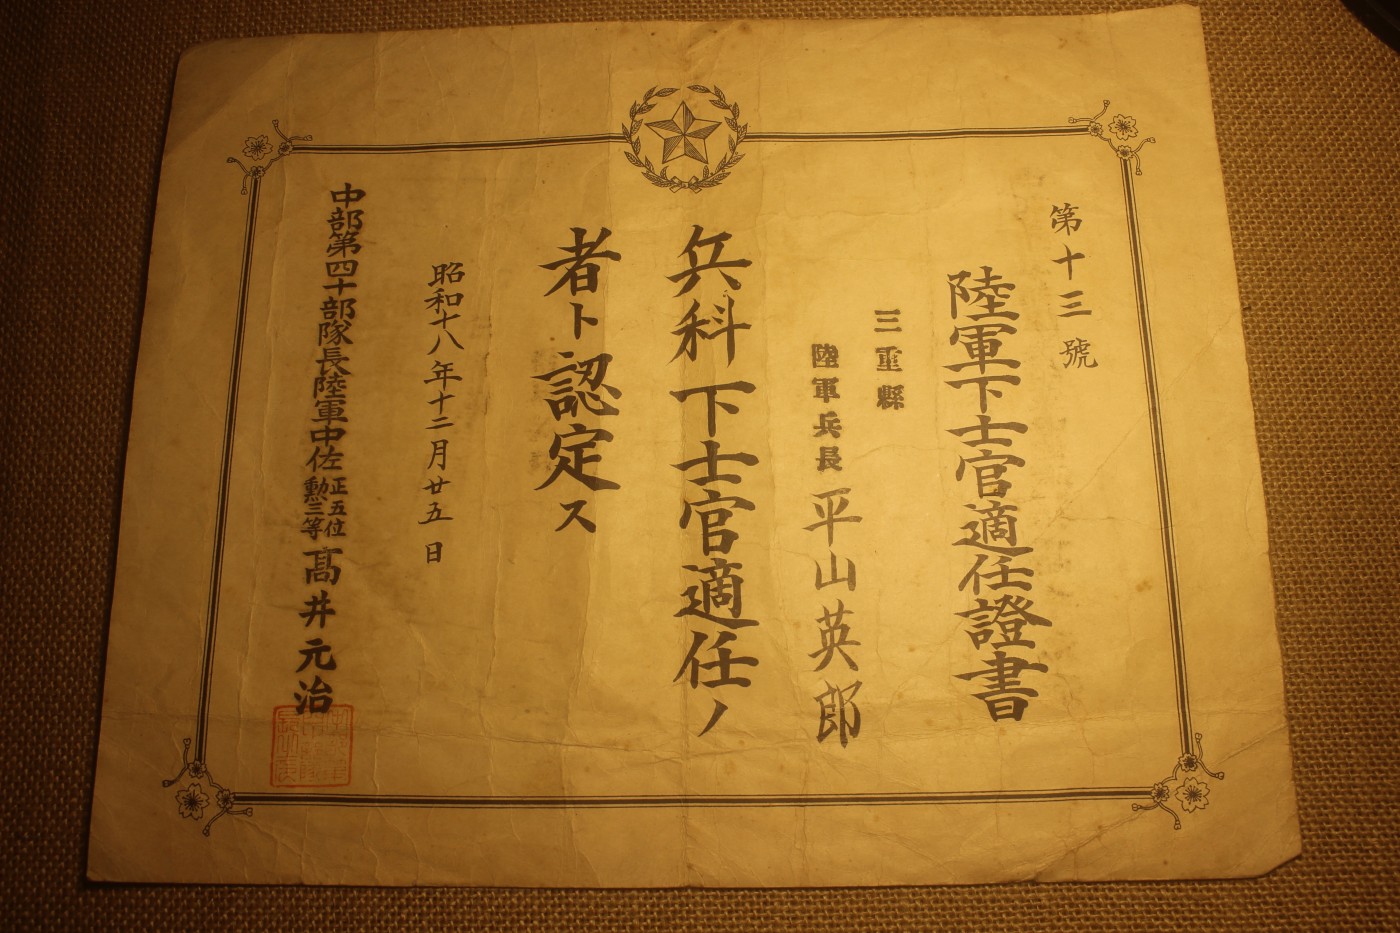 第十三號
陸軍下士官適任證書
三重縣
陸軍兵長 平山英郎
兵科下士官適任ノ
者ト認定ス
昭和十八年十二月廿五日
中部第四十部隊長陸軍中佐正五位勲三等髙井元治